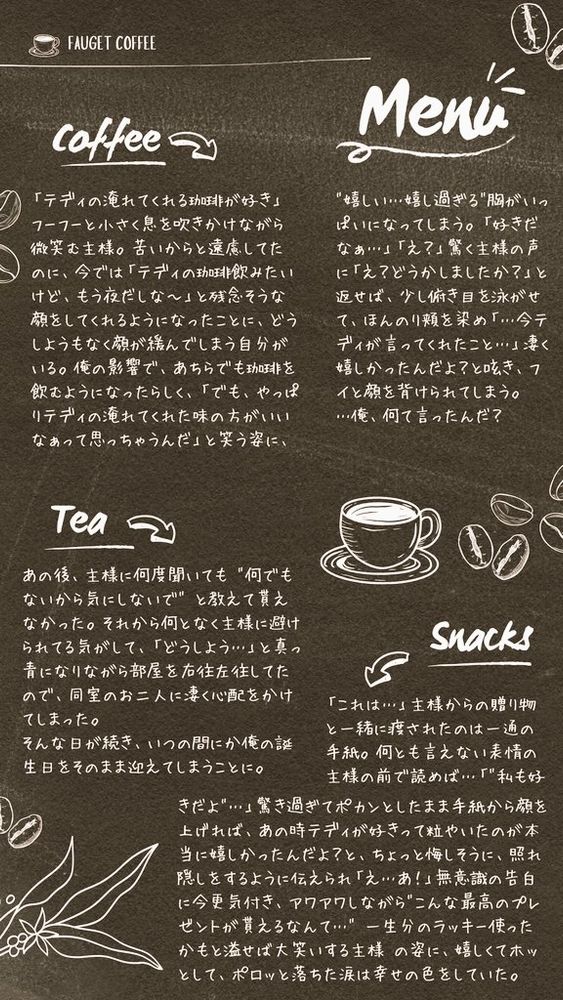 FAUGET COFFEE
Menu
Coffee
「テディの淹れてくれる珈琲が好き」
フーフーと小さく息を吹きかけながら
微笑む主様。苦いからと遠慮してた
のに、今では「テディの珈琲飲みたい
けど、もう夜だしな〜」と残念そうな
顔をしてくれるようになったことに、どう
しようもなく顔が緩んでしまう自分が
いる。俺の影響で、あちらでも珈琲を
飲むようになったらしく、「でも、やっぱ
りテディの淹れてくれた味の方がいい
なぁって思っちゃうんだ」と笑う姿に、
"嬉しい…嬉し過ぎる"胸がいっ
ぱいになってしまう。「好きだ
なぁ…」「え?」驚く主様の声
に「え?どうかしましたか?」と
返せば、少し俯き目を泳がせ
て、ほんのり頬を染め「…今テ
ディが言ってくれたこと…」凄く
嬉しかったんだよ?と呟き、フ
イと顔を背けられてしまう。
…俺、何て言ったんだ?
Tea
あの後、主様に何度聞いても "何でも
ないから気にしないで" と教えて貰え
なかった。それから何となく主様に避け
られてる気がして、「どうしよう…」と真っ
青になりながら部屋を右往左往してた
ので、同室のお二人に凄く心配をかけ
てしまった。
そんな日が続き、いつの間にか俺の誕
生日をそのまま迎えてしまうことに。
Snacks
「これは…」主様からの贈り物
と一緒に渡されたのは一通の
手紙。何とも言えない表情の
主様の前で読めば…「"私も好
きだよ"…」驚き過ぎてポカンとしたまま手紙から顔を
上げれば、あの時テディが好きって粒やいたのが本
当に嬉しかったんだよ?と、ちょっと悔しそうに、照れ
隠しをするように伝えられ「え…あ!」無意識の告白
に今更気付き、アワアワしながら"こんな最高のプレ
ゼントが貰えるなんて…" 一生分のラッキー使った
かもと溢せば大笑いする主様 の姿に、嬉しくてホッ
として、ポロッと落ちた涙は幸せの色をしていた。